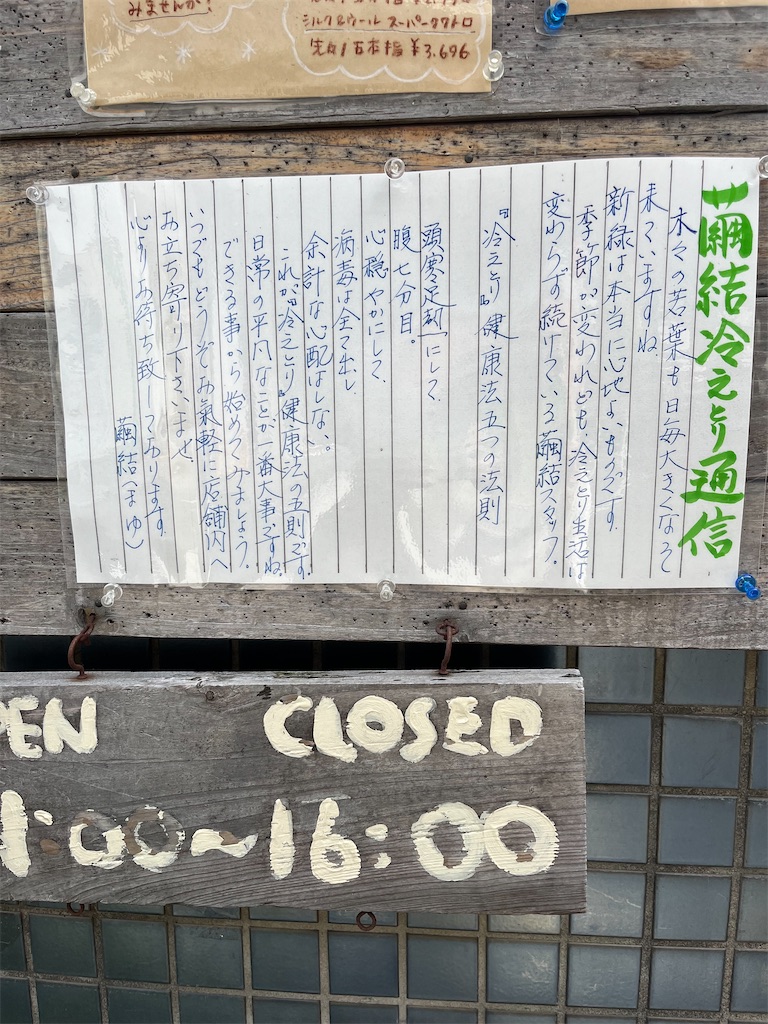 みませんか?
シルク&ウール スーパークワトロ
先丸1 五本指 ¥3,696
繭結冷えとり通信
木々の若葉も日毎大きくなって
来ていますね
新緑は本当に心地よいものです。
季節が変われども冷えとり生活は
変わらず続けている繭結スタッフ。
『冷えとり』健康法五つの法則
頭寒足熱にして
腹七分目。
心穏やかにして
病毒は全て出し
余計な心配はしない。
これが『冷えとり』健康法の五則です。
日常の平凡なことが一番大事ですね
できる事から始めてみましょう。
いつでもどうぞお気軽に店舗内へ
お立ち寄り下さいませ
心よりお待ち致しております。
繭結(まゆ)
PEN CLOSED
1:00~16:00